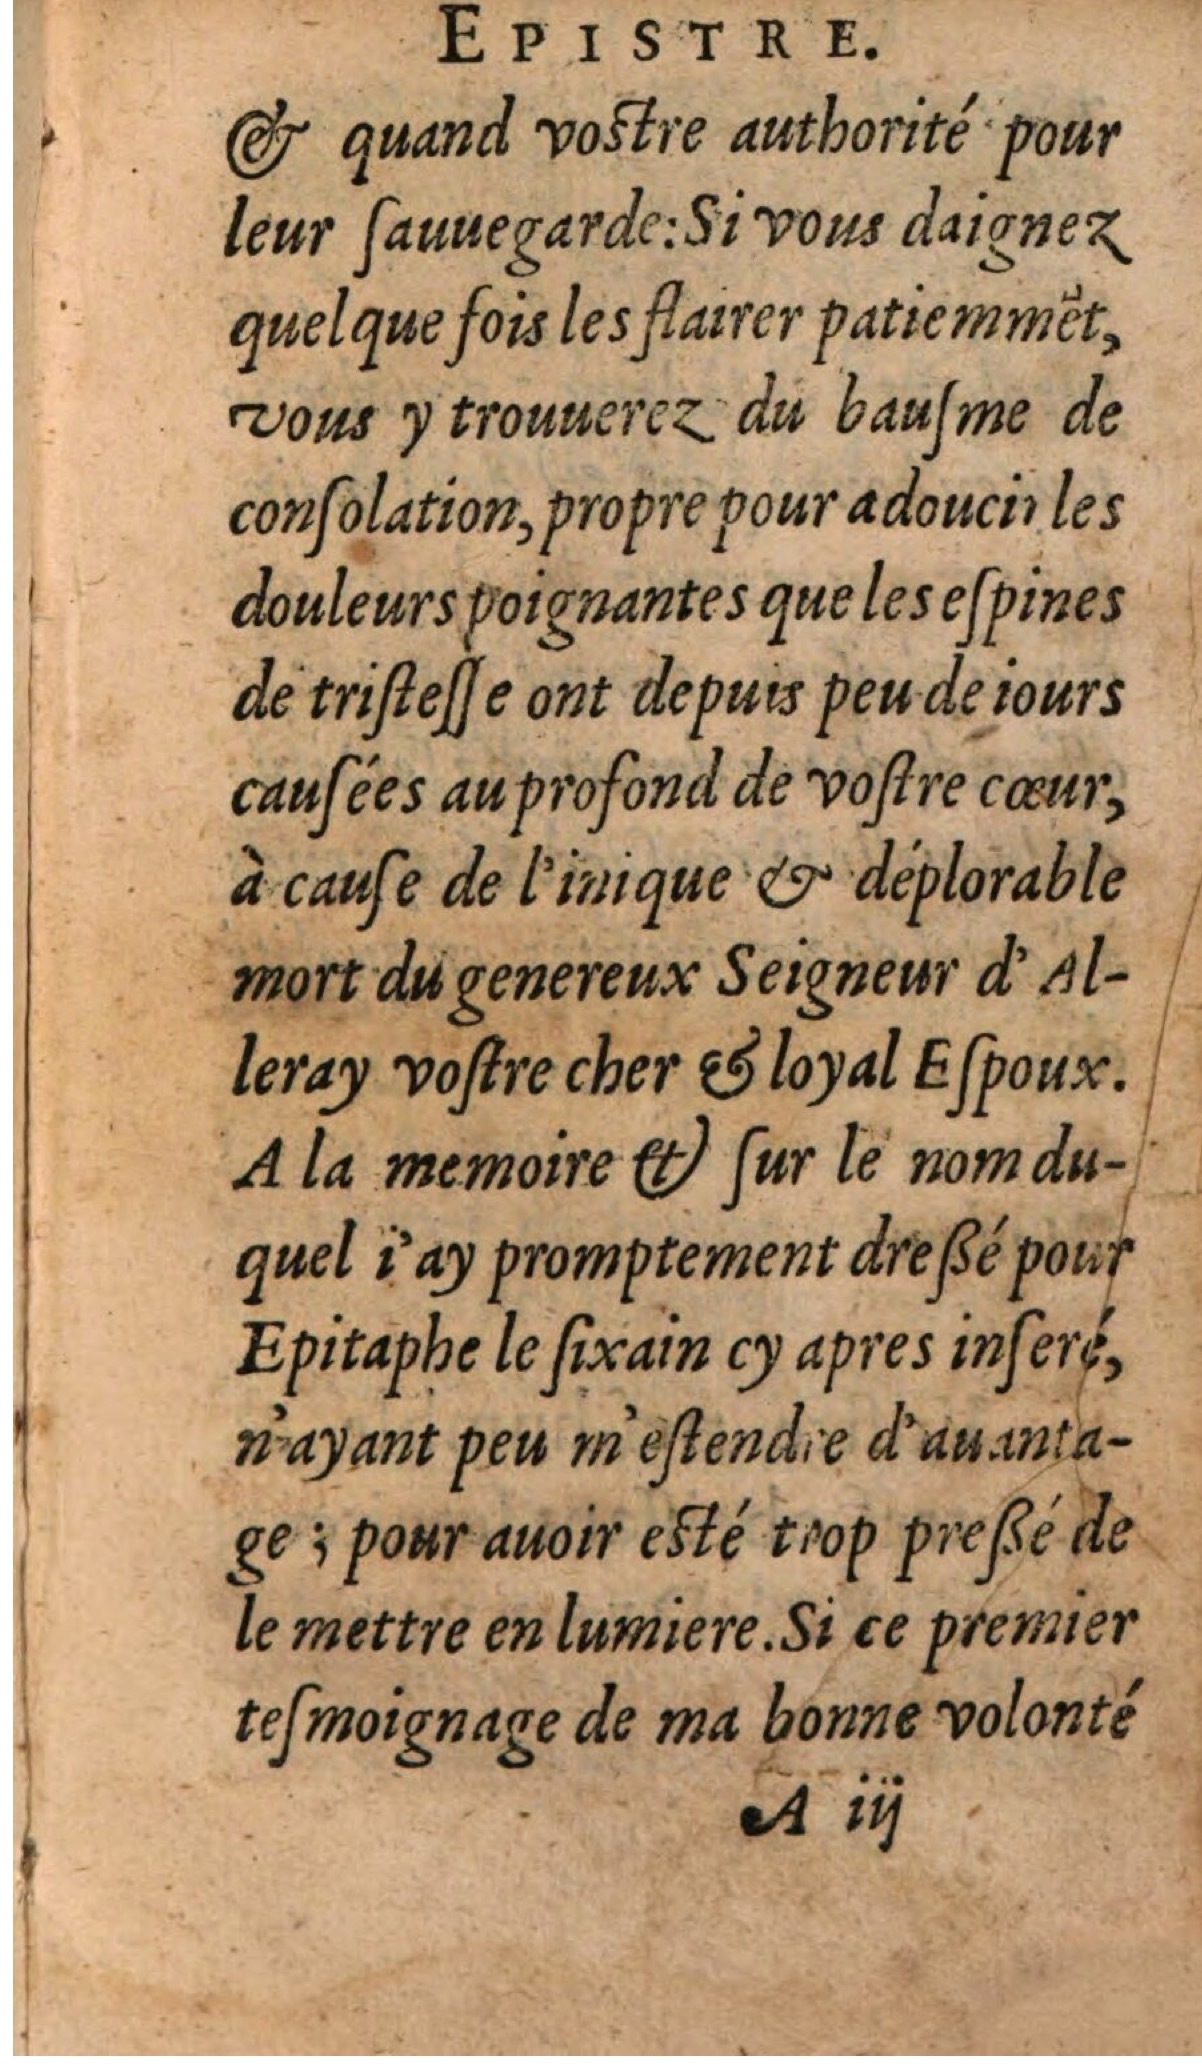 EPISTRE.
& quand vostre authorité pour
leur ſauuegarde: Si vous daignez
quelque fois les flairer patiemmēt,
vous y trouuerez du bauſme de
conſolation, propre pour adoucir les
douleurs poignantes que les eſpines
de triſteſſe ont depuis peu de iours
cauſées au profond de voſtre cœur,
à cauſe de l'inique & déplorable
mort du genereux Seigneur d'Al-
leray voſtre cher & loyal Eſpoux.
A la memoire & ſur le nom du-
quel i'ay promptement dreßé pour
Epitaphe le ſixain cy apres inſeré,
n'ayant peu m'eſtendre d'auanta-
ge; pour auoir eſté trop preßé de
le mettre en lumiere. Si ce premier
teſmoignage de ma bonne volonté
A iij